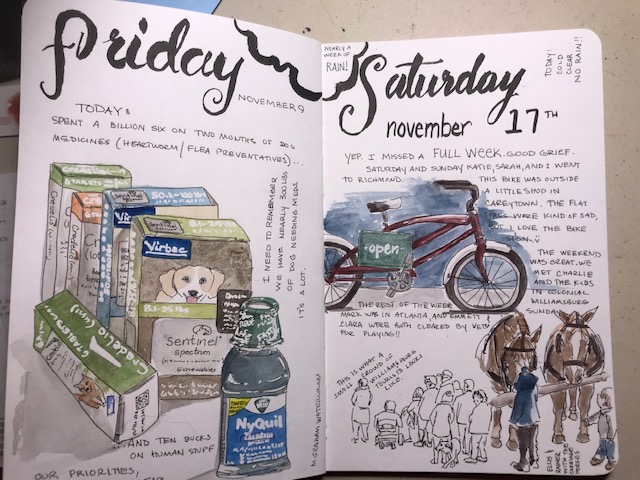 Friday
NOVEMBER 9
TODAY:
SPENT A BILLION SIX ON TWO MONTHS OF DOG
MEDICINES (HEARTWORM/FLEA PREVENTATIVES)...
I NEED TO REMEMBER
WE HAVE NEARLY 300 LBS
OF DOG NEEDING MEDS.
IT'S A LOT.
Credelio
50.1-100 lb
Virbac
Virbac
8.1-25 lbs
Sentinel
spectrum
6 chewables
Credelio
NyQuil
...AND TEN BUCKS
ON HUMAN STUFF
OUR PRIORITIES,
M. GRAHAM WATERCOLORS
NEARLY A
WEEK OF
RAIN!
Saturday
november 17TH
TODAY:
COLD
CLEAR
NO RAIN!!
YEP. I MISSED A FULL WEEK. GOOD GRIEF.
SATURDAY AND SUNDAY KATIE, SARAH, AND I WENT
TO RICHMOND. THIS BIKE WAS OUTSIDE
A LITTLE SHOP IN
CAREYTOWN. THE FLAT
TIRES WERE KIND OF SAD,
BUT I LOVE THE BIKE
SIGN.
open
THE WEEKEND
WAS GREAT. WE
MET CHARLIE
AND THE KIDS
IN COLONIAL
WILLIAMSBURG
SUNDAY.
THE REST OF THE WEEK
MARK WAS IN ATLANTA, AND EMMETT
CLARA WERE BOTH CLEARED BY VETS
FOR PLAYING!!
THIS IS WHAT A
SMALL CROWD OF
WILLIAMSBURG
TOURISTS LOOKS
LIKE.
WITH THE
CARRIAGE
HORSES